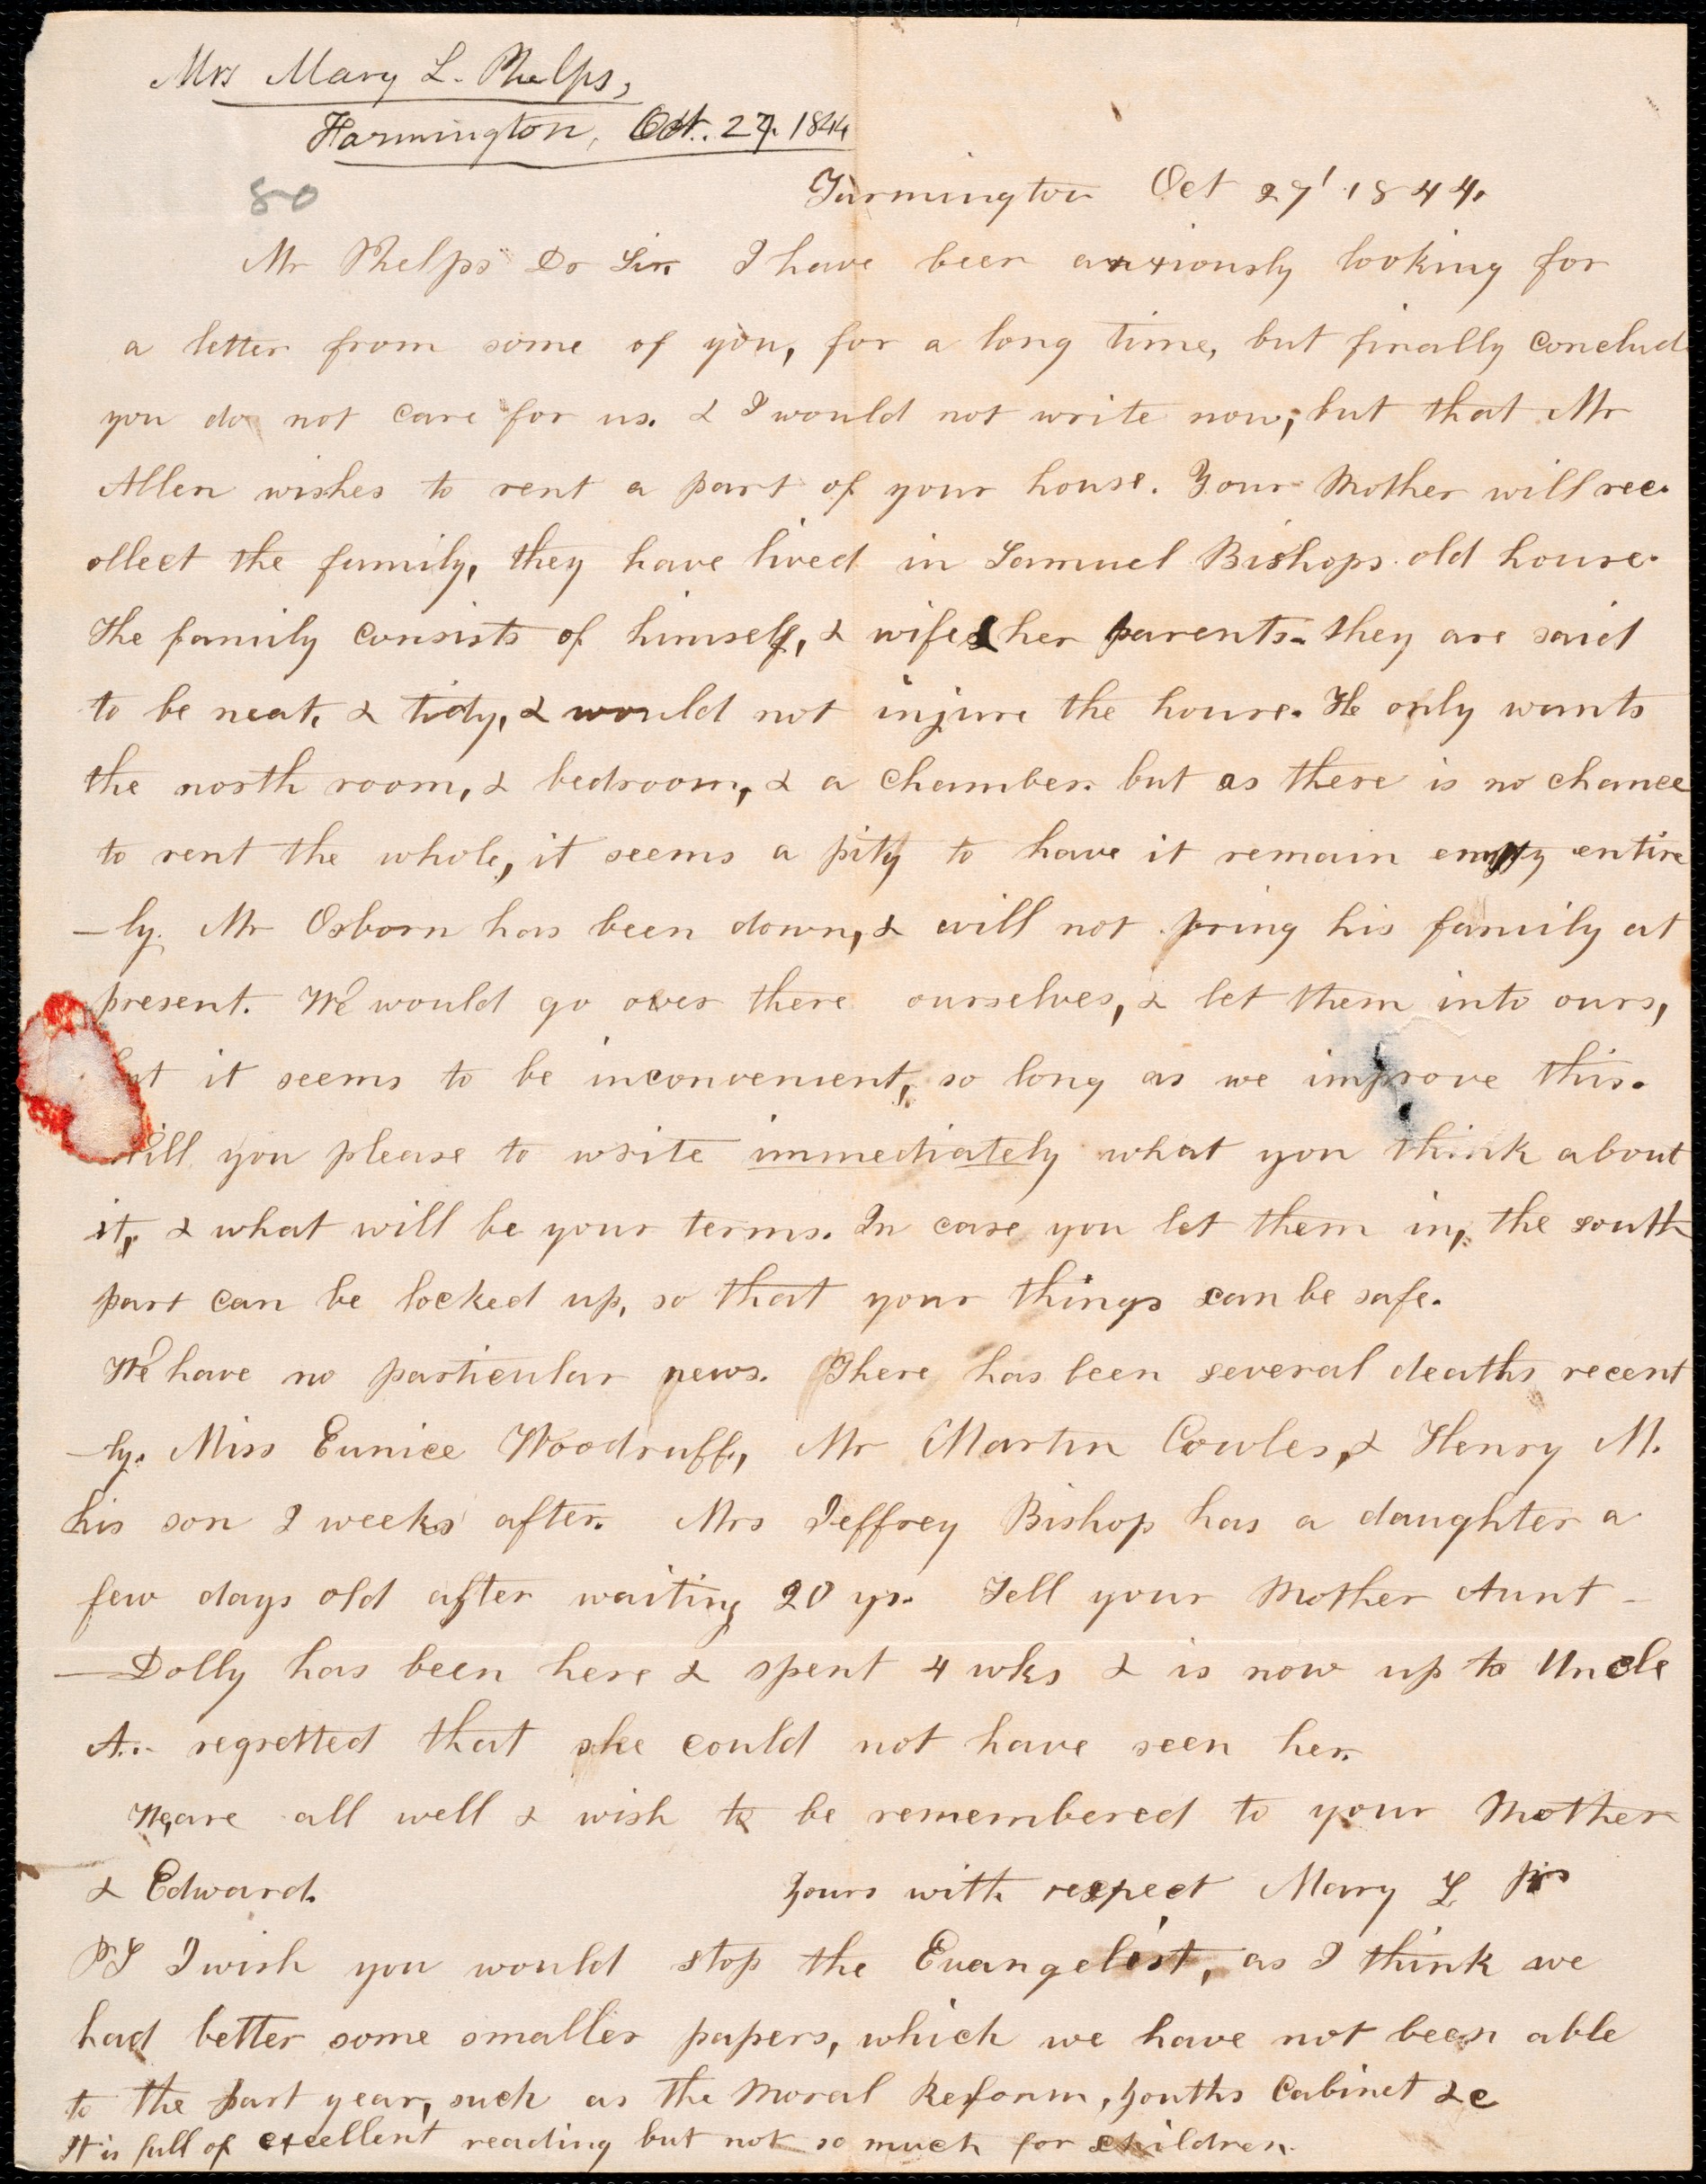 Mrs Mary L. Phelps,
Farmington, Oct. 27. 1844
80
Farmington Oct 27' 1844.
Mr Phelps Dr Sir. I have been anxiously looking for
a letter from some of you, for a long time, but finally conclud
you do not care for us. & I would not write now, but that Mr
Allen wishes to rent a part of your house. Your Mother will rec-
ollect the family, they have lived in Samuel Bishops old house.
The family consists of himself, & wife & her parents. they are said
to be neat, & tidy, & would not injure the house. He only wants
the north room, & bedroom, & a chamber. but as there is no chance
to rent the whole, it seems a pity to have it remain empty entire
-ly. Mr Osborn has been down, & will not bring his family at
present. We would go over there ourselves, & let them into ours,
but it seems to be inconvenient, so long as we improve this.
Will you please to write immediately what you think about
it, & what will be your terms. In case you let them in, the south
part can be locked up, so that your things can be safe.
We have no particular news. There has been several deaths recent
-ly. Miss Eunice Woodruff, Mr Martin Cowles, & Henry M.
his son 2 weeks after. Mrs Jeffrey Bishop has a daughter a
few days old after waiting 20 yrs. Tell your Mother Aunt -
-Dolly has been here & spent 4 wks & is now up to Uncle
A.. regretted that she could not have seen her.
We are all well & wish to be remembered to your Mother
& Edward. Yours with respect Mary L
PS I wish you would stop the Evangelist, as I think we
had better some smaller papers, which we have not been able
to the past year, such as the Moral Reform, Youths Cabinet &c
It is full of excellent reading but not so much for children.